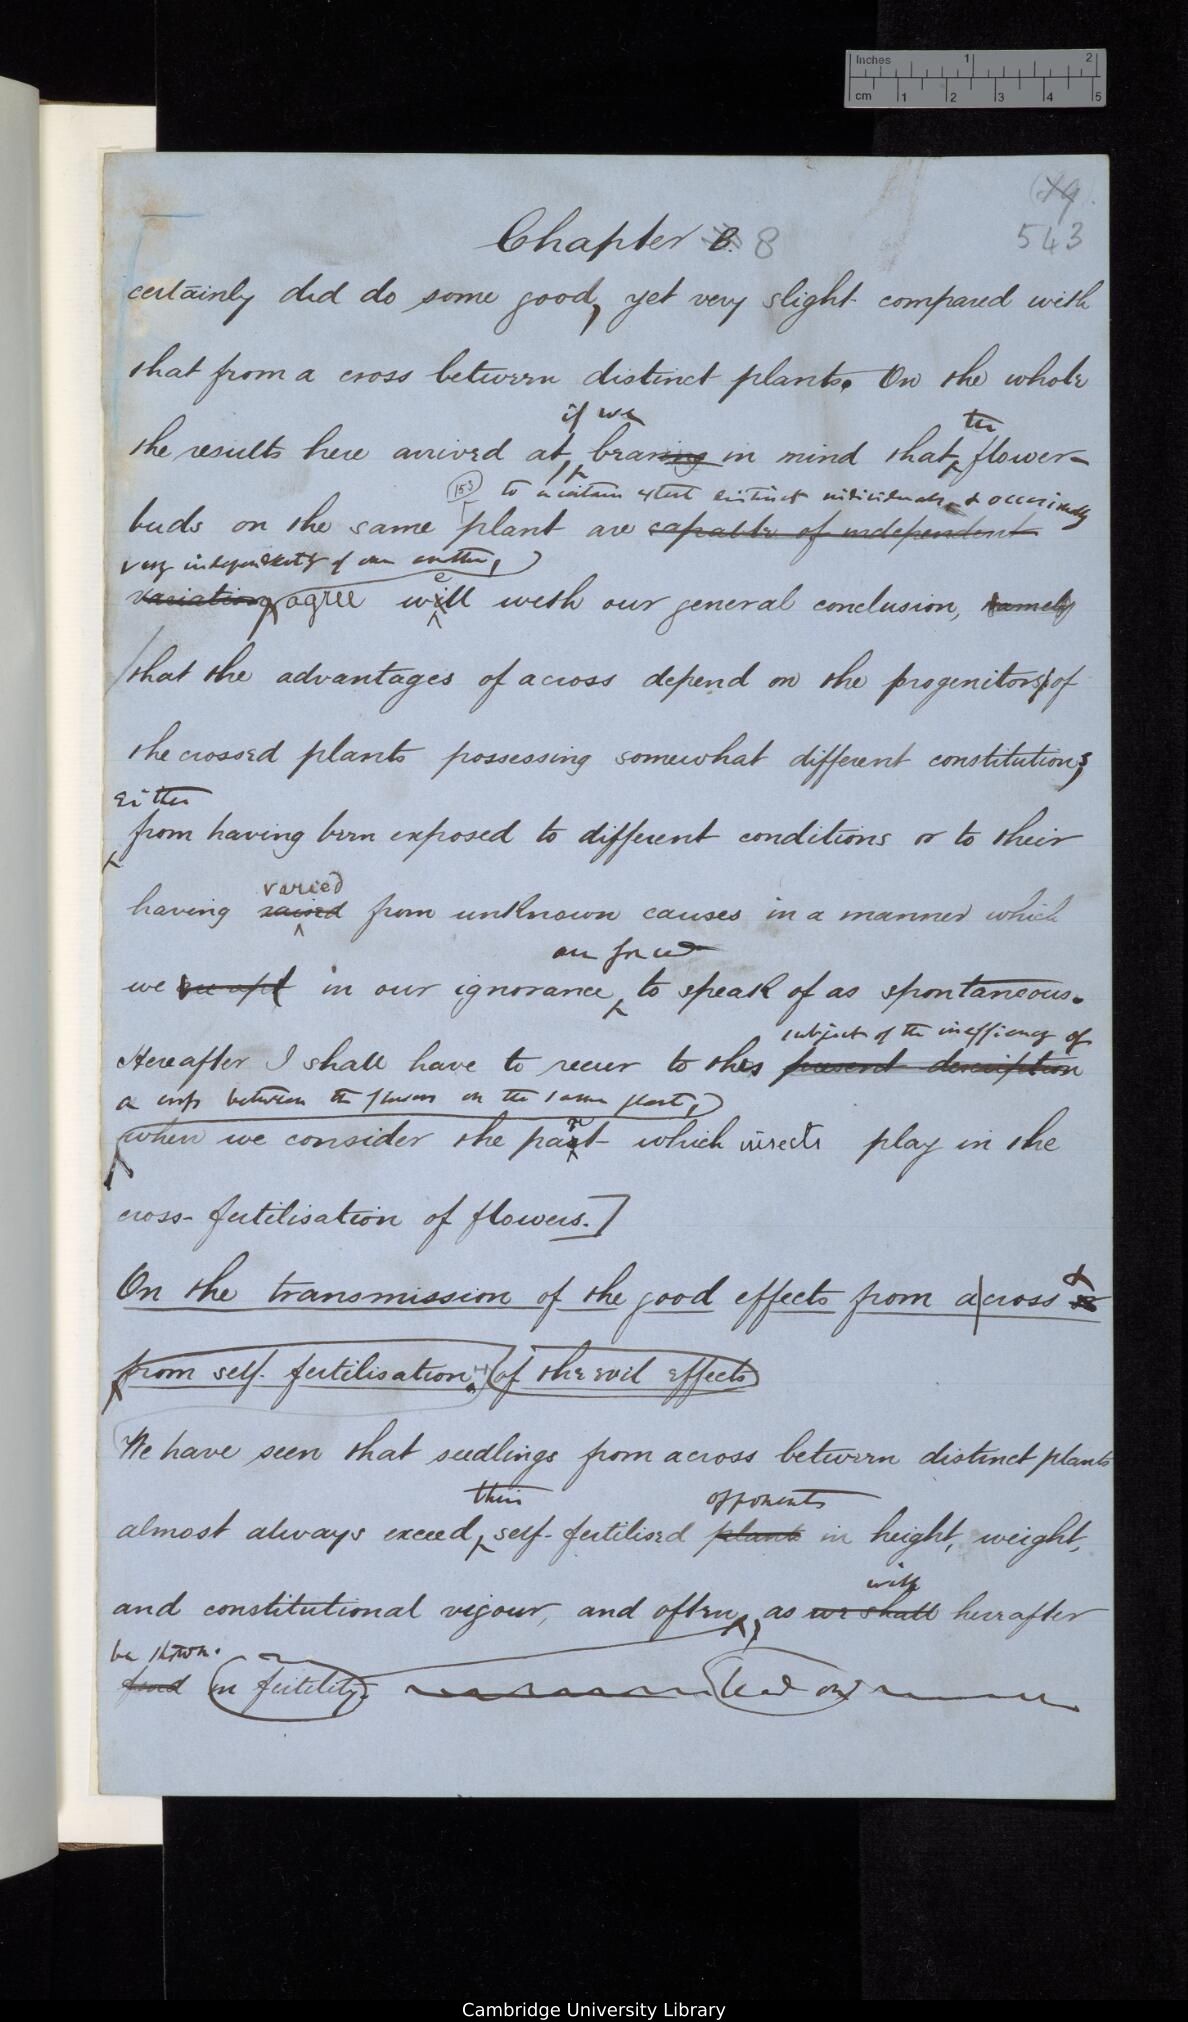 Inches 1 2
cm 1 2 3 4 5
543
Chapter 8. 8
certainly did do some good, yet very slight compared with
that from a cross between distinct plants. On the whole
if we the
the results here arrived at, bearing in mind that flower-
153 to a certain extent distinct individuals, & occasionally
buds on the same plant are capable of independent
vary independently of one another,
variation, agree well with our general conclusion, namely
that the advantages of a cross depend on the progenitors of
the crossed plants possessing somewhat different constitutions,
either
from having been exposed to different conditions or to their
varied
having raised from unknown causes in a manner which
are forced
we in our ignorance to speak of as spontaneous.
subject of the inefficiency of
Hereafter I shall have to recur to this present description
a cross between the flowers on the same plant,
when we consider the part which insects play in the
cross-fertilisation of flowers.]
On the transmission of the good effects from a cross &
from self-fertilisation. of the evil effects
We have seen that seedlings from a cross between distinct plants
their opponents
almost always exceed self-fertilised plants in height, weight,
will
and constitutional vigour, and often, as we shall hereafter
be shown.
find in fertility. Read on
Cambridge University Library